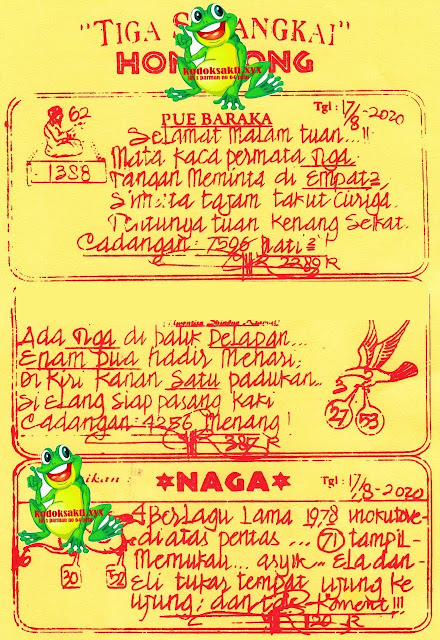 "TIGA S ANGKAI"
HON ONG
kodoksakti.xyx
Tgl : 17/8-2020
62
1388
PUE BARAKA
Selamat Malam tuan...!!
Mata kaca permata Tiga
Tangan Meminta di Empat2,
tajam takut Curiga.
Tentunya tuan kenang Seikat.
Cadangan : 7596 Mati 2
2289 R
Ada Tiga di balik Delapan...
Enam Dua hadir Menari,
Di Kiri Kanan Satu padukan..
Si Elang Siap pasang kaki
Cadangan : 4286 Menang !
387 R
27 53
kodoksakti.xyx
ikan :
✡NAGA✡
Tgl : 17/8-2020
4 Berlagu Lama 1978
diatas pentas ... 71 tampil-
Memukau... asyik.. Ela dan-
Eli tukar tempat ujung ke
ujung; dan tak Koment !!!
120 R
6
30 52